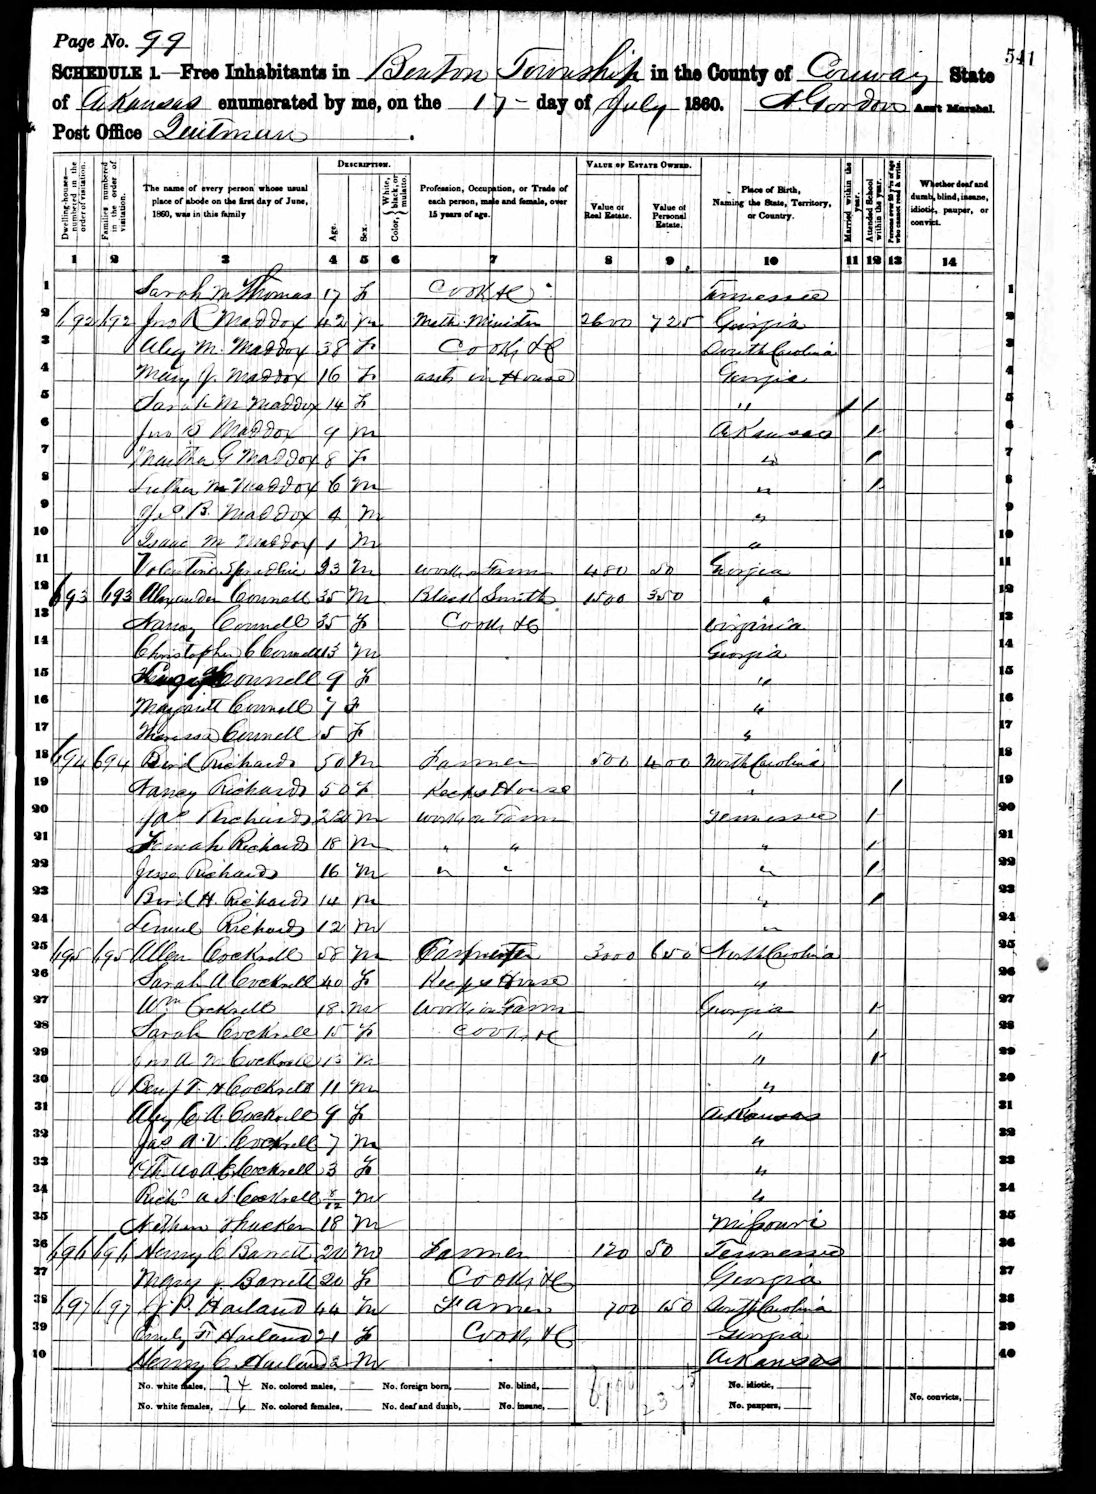 Page No. 99
541
SCHEDULE 1.—Free Inhabitants in Benton Township in the County of Conway State
of Arkansas enumerated by me, on the 17 day of July 1860. A. Gordon Ass't Marshal.
Post Office Quitman
Dwelling-houses—numbered in the order of visitation.
Families numbered in the order of visitation.
The name of every person whose usual place of abode on the first day of June, 1860, was in this family
DESCRIPTION.
Age.
Sex.
Color, White, black, or mulatto.
Profession, Occupation, or Trade of each person, male and female, over 15 years of age.
VALUE OF ESTATE OWNED.
Value of Real Estate.
Value of Personal Estate.
Place of Birth, Naming the State, Territory, or Country.
Married within the year.
Attended School within the year.
Persons over 20 y'rs of age who cannot read & write.
Whether deaf and dumb, blind, insane, idiotic, pauper, or convict.
1 2 3 4 5 6 7 8 9 10 11 12 13 14
1 Sarah M Thomas 17 f Cook &c Tennessee 1
2 692 692 Jno R Maddox 42 m Meth. Minister 2600 725 Georgia 2
3 M. Maddox 38 f Cook &c South Carolina 3
4 Mary J. Maddox 16 f asst in House Georgia 4
5 Sarah M Maddox 14 f " 1 1 5
6 Jno Maddox 9 m Arkansas 1 6
7 Martha G Maddox 8 f " 1 7
8 Luther M Maddox 6 m " 1 8
9 B. Maddox 4 m " 9
10 Isaac M Maddox 1 m " 10
11 Valentine 23 m works on Farm 480 50 Georgia 11
12 693 693 Alexander Connell 35 m Black Smith 1500 350 " 12
13 Nancy Connell 35 f Cook &c Virginia 13
14 Christopher C Connell 13 m Georgia 14
15 Connell 9 f " 15
16 Margarett Connell 7 f " 16
17 Theressa Connell 5 f " 17
18 694 694 Bird Richards 50 m Farmer 500 400 North Carolina 18
19 Nancy Richards 50 f Keeps House " 1 19
20 Jas Richards 22 m works on Farm Tennessee 1 20
21 Richards 18 m " " " 1 21
22 Jesse Richards 16 m " " " 1 22
23 Bird H. Richards 14 m " 1 23
24 Lemuel Richards 12 m " 24
25 695 695 Allen Cockrell 58 m Carpenter 3000 650 North Carolina 25
26 Sarah A Cockrell 40 f Keeps House " 26
27 Wm Cockrell 18 m works on Farm Georgia 1 27
28 Sarah Cockrell 15 f Cook &c " 1 28
29 A M Cockrell 13 m " 1 29
30 Benj F. H Cockrell 11 m " 30
31 C. A. Cockrell 9 f Arkansas 31
32 Jas A. V. Cockrell 7 m " 32
33 Cockrell 3 f " 33
34 Richd A S. Cockrell 8/12 m " 34
35 Nathan Thacker 18 m Missouri 35
36 696 696 Henry C Barrett 24 m Farmer 120 50 Tennessee 36
37 Mary J. Barrett 20 f Cook &c Georgia 37
38 697 697 J. P. Harland 44 m Farmer 700 150 South Carolina 38
39 Emily F. Harland 21 f Cook &c Georgia 39
40 Henry C. Harland 2 m Arkansas 40
No. white males, 24 No. colored males, No. foreign born, No. blind, No. idiotic,
No. white females, 16 No. colored females, No. deaf and dumb, No. insane, No. paupers, No. convicts,